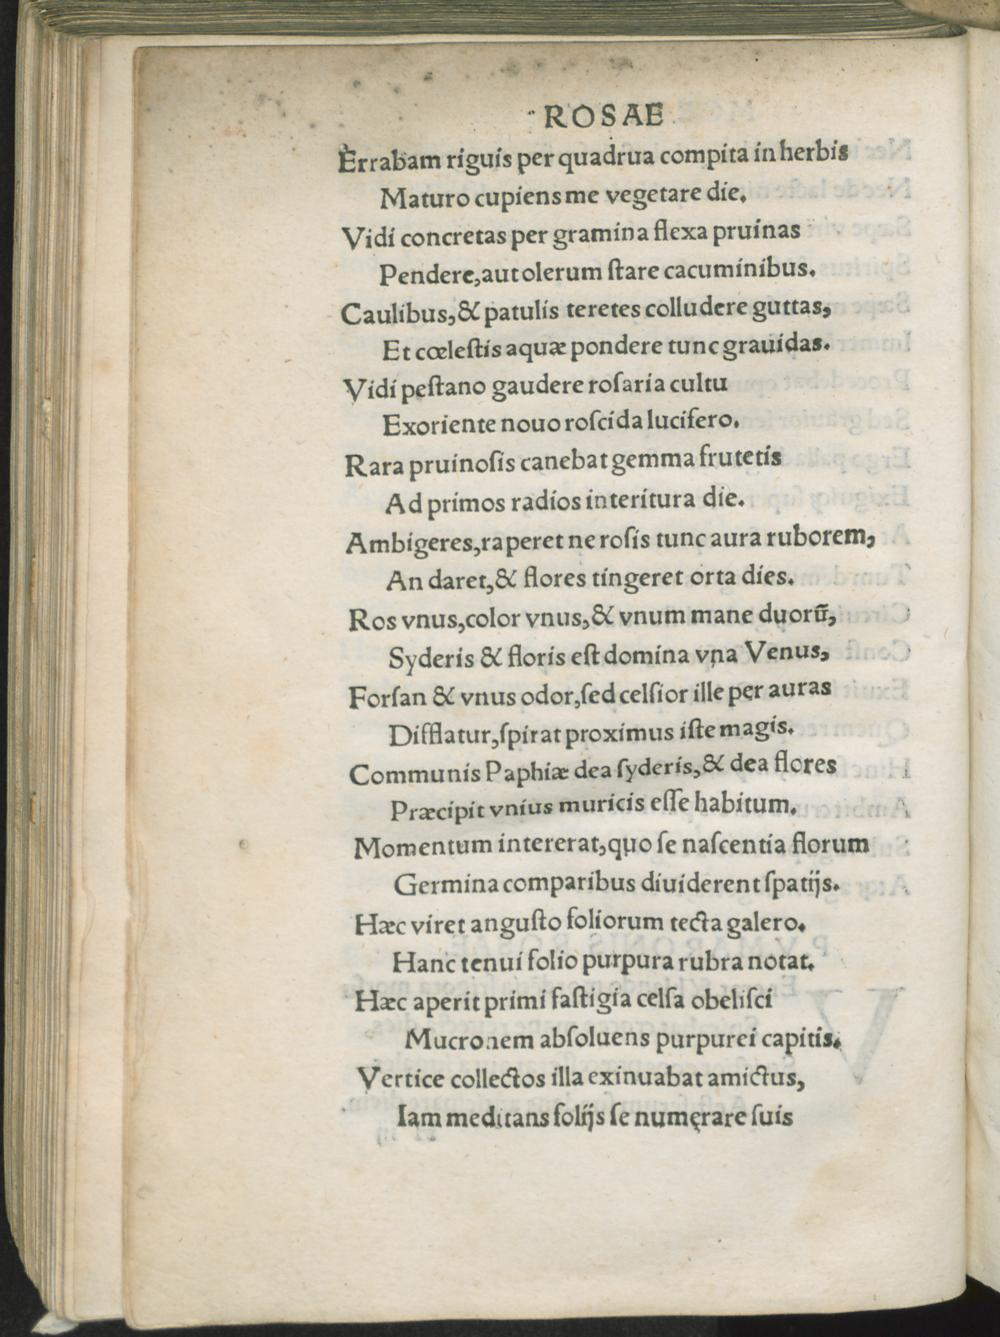 ROSAE
Errabam riguis per quadrua compita in herbis
Maturo cupiens me vegetare die.
Vidi concretas per gramina flexa pruinas
Pendere, aut olerum ſtare cacuminibus.
Caulibus, & patulis teretes colludere guttas,
Et cœleſtis aquæ pondere tunc grauidas.
Vidi peſtano gaudere roſaria cultu
Exoriente nouo roſcida lucifero.
Rara pruinoſis canebat gemma frutetis
Ad primos radios interitura die.
Ambigeres, raperet ne roſis tunc aura ruborem,
An daret, & flores tingeret orta dies.
Ros vnus, color vnus, & vnum mane duorū,
Syderis & floris eſt domina vna Venus,
Forſan & vnus odor, ſed celſior ille per auras
Difflatur, ſpirat proximus iſte magis.
Communis Paphiæ dea ſyderis, & dea flores
Præcipit vnius muricis eſſe habitum.
Momentum intererat, quo ſe naſcentia florum
Germina comparibus diuiderent ſpatijs.
Hæc viret anguſto foliorum tecta galero.
Hanc tenui folio purpura rubra notat.
Hæc aperit primi faſtigia celſa obeliſci
Mucronem abſoluens purpurei capitis.
Vertice collectos illa exinuabat amictus,
Iam meditans folijs ſe numęrare ſuis